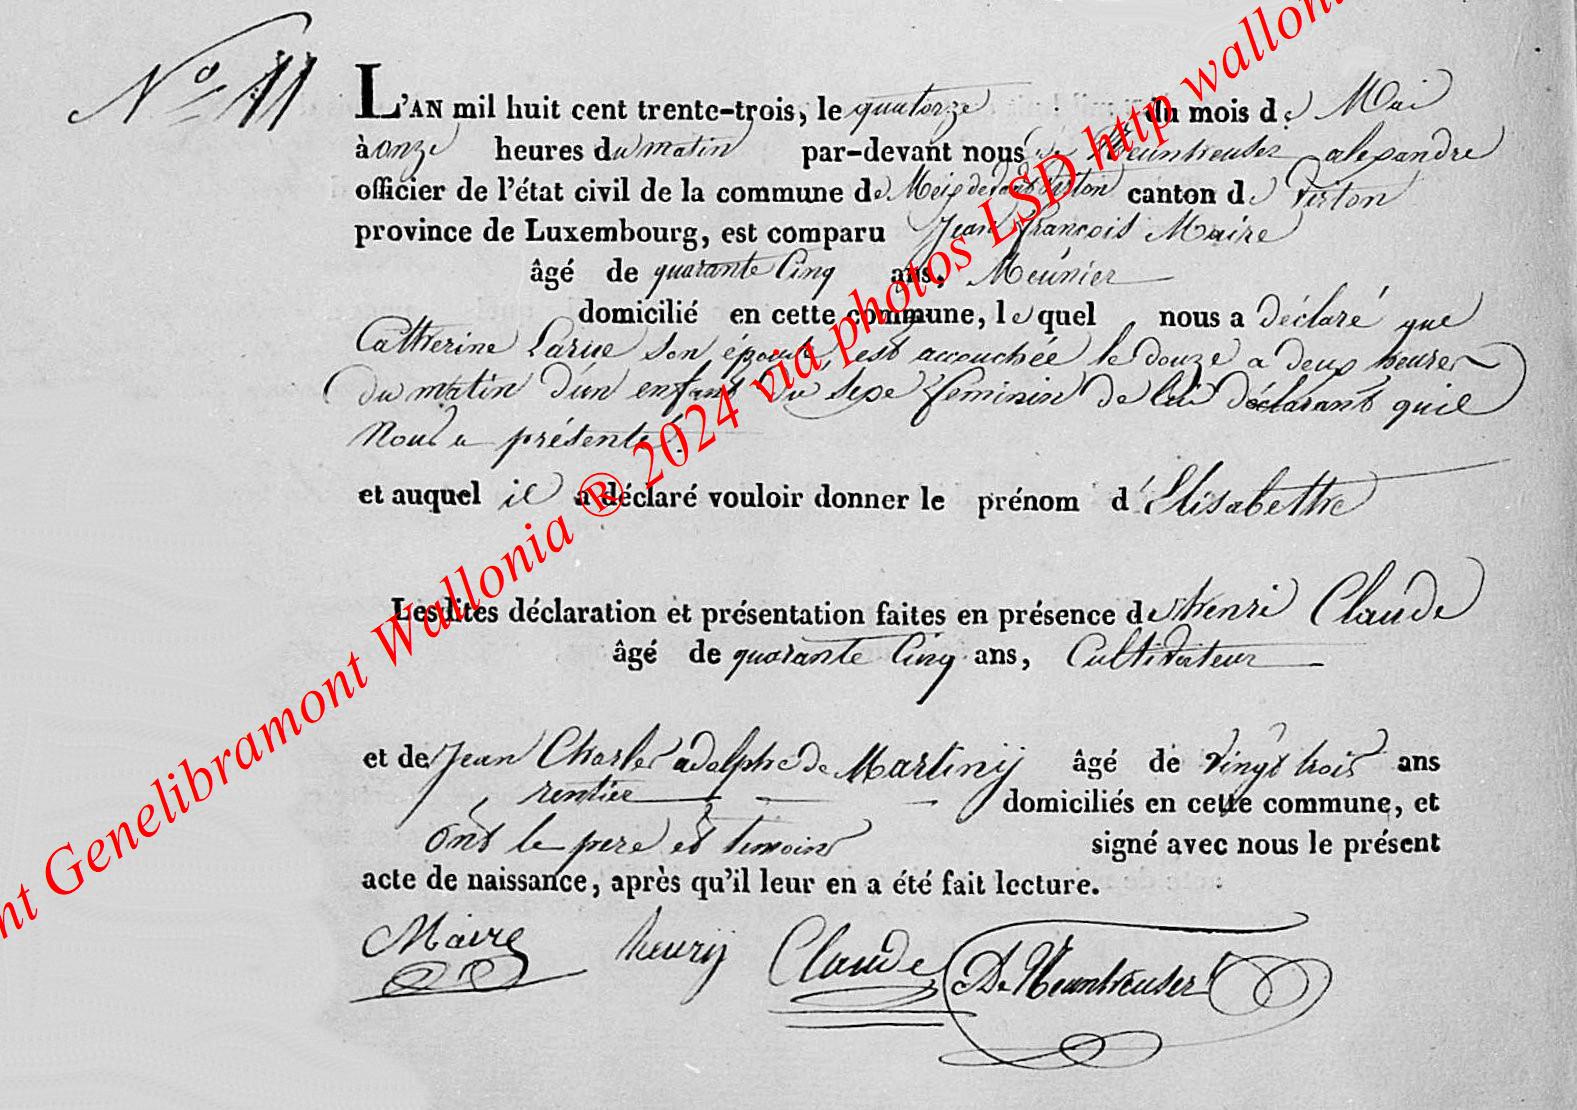 N.o 11
L'AN mil huit cent trente-trois, le quatorze du mois de Mai
à onze heures du matin par-devant nous alexandre
officier de l'état civil de la commune de Meix devant Virton canton de Virton
province de Luxembourg, est comparu Jean françois Maire
âgé de quarante Cinq ans, Meunier
domicilié en cette commune, lequel nous a déclaré que
Catherine Larue son épouse, est accouchée le douze a deux heures
du matin d'un enfant du sexe feminin de lui déclarant qu'il
Nous a présenté.
et auquel il a déclaré vouloir donner le prénom d'Elisabethe
Lesdites déclaration et présentation faites en présence de henri Claude
âgé de quarante Cinq ans, Cultivateur
et de Jean Charles adolphe de Martiny âgé de vingt trois ans
rentier domiciliés en cette commune, et
ont le pere et temoins signé avec nous le présent
acte de naissance, après qu'il leur en a été fait lecture.
Maire henry Claude
Genelibramont Wallonia ® 2024 via photos LSD http walloni